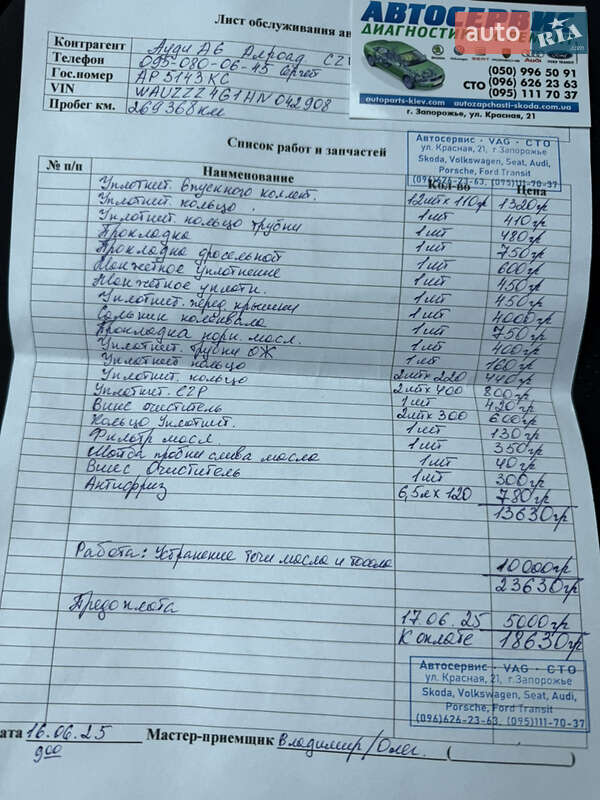 Лист обслуживания ав
АВТОСЕРВИС
ДИАГНОСТИ
auto RIA.com
Контрагент Ауди А6 Алроад CZ
Телефон 095-080-06-45 Сергей
Гос.номер АР 5143 КС
VIN WAUZZZ4G1HN042908
Пробег км. 269 368 км
СТО
(050) 996 50 91
(096) 626 23 63
(095) 111 70 37
autoparts-kiev.com autozapchasti-skoda.com.ua
г. Запорожье, ул. Красная, 21
Список работ и запчастей
Автосервис · VAG · СТО
ул. Красная, 21, г.Запорожье
Skoda, Volkswagen, Seat, Audi,
Porsche, Ford Transit
(096)626-23-63, (095)111-70-37
№ п/п Наименование Кол-во Цена
Уплотнит. впускного коллект. 12шт х 110гр 1320гр
Уплотнит. кольцо 1шт 410гр
Уплотнит. кольцо трубки 1шт 480гр
Прокладка 1шт 750гр
Прокладка дросельной 1шт 600гр
Манжетное уплотнение 1шт 450гр
Манжетное уплотн. 1шт 450гр
Уплотнит. перед крышки 1шт 4000гр
Сальник коленвала 1шт 750гр
Прокладка корп. масл. 1шт 400гр
Уплотнит. трубки ОЖ 1шт 160гр
Уплотнит кольцо 2шт х 220 440гр
Уплотнит. кольцо 2шт х 400 800гр
Уплотнит. CZP 1шт 420гр
Винс очиститель 2шт х 300 600гр
Кольцо Уплотнит. 1шт 130гр
Фильтр масл 1шт 350гр
пробки слива масла 1шт 40гр
Винс Очиститель 1шт 300гр
Антифриз 6,5л х 120 780гр
13630гр
Работа: Устранение течи масла и тосола 10000гр
23630гр
Предоплата 17.06.25 5000гр
К оплате 18630гр
Автосервис · VAG · СТО
ул. Красная, 21, г.Запорожье
Skoda, Volkswagen, Seat, Audi,
Porsche, Ford Transit
(096)626-23-63, (095)111-70-37
ата 16.06.25 Мастер-приемщик Владимир/Олег. ( )
9:00